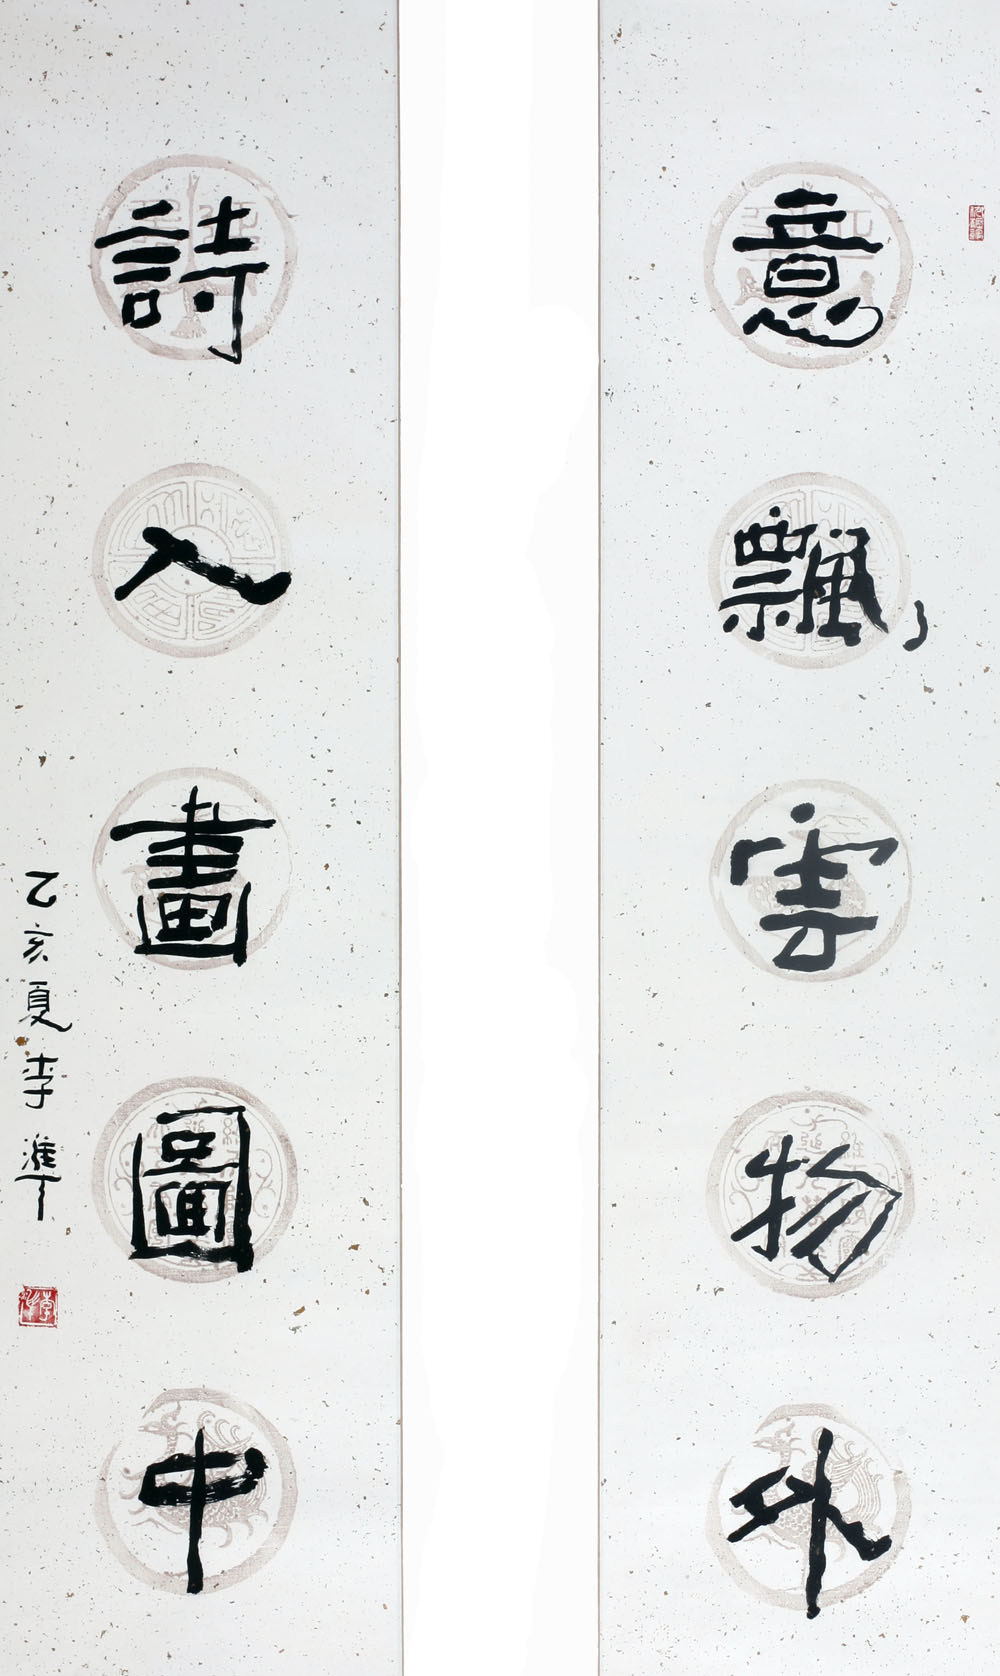 意飄雲物外
詩入畫圖中
乙亥夏李準